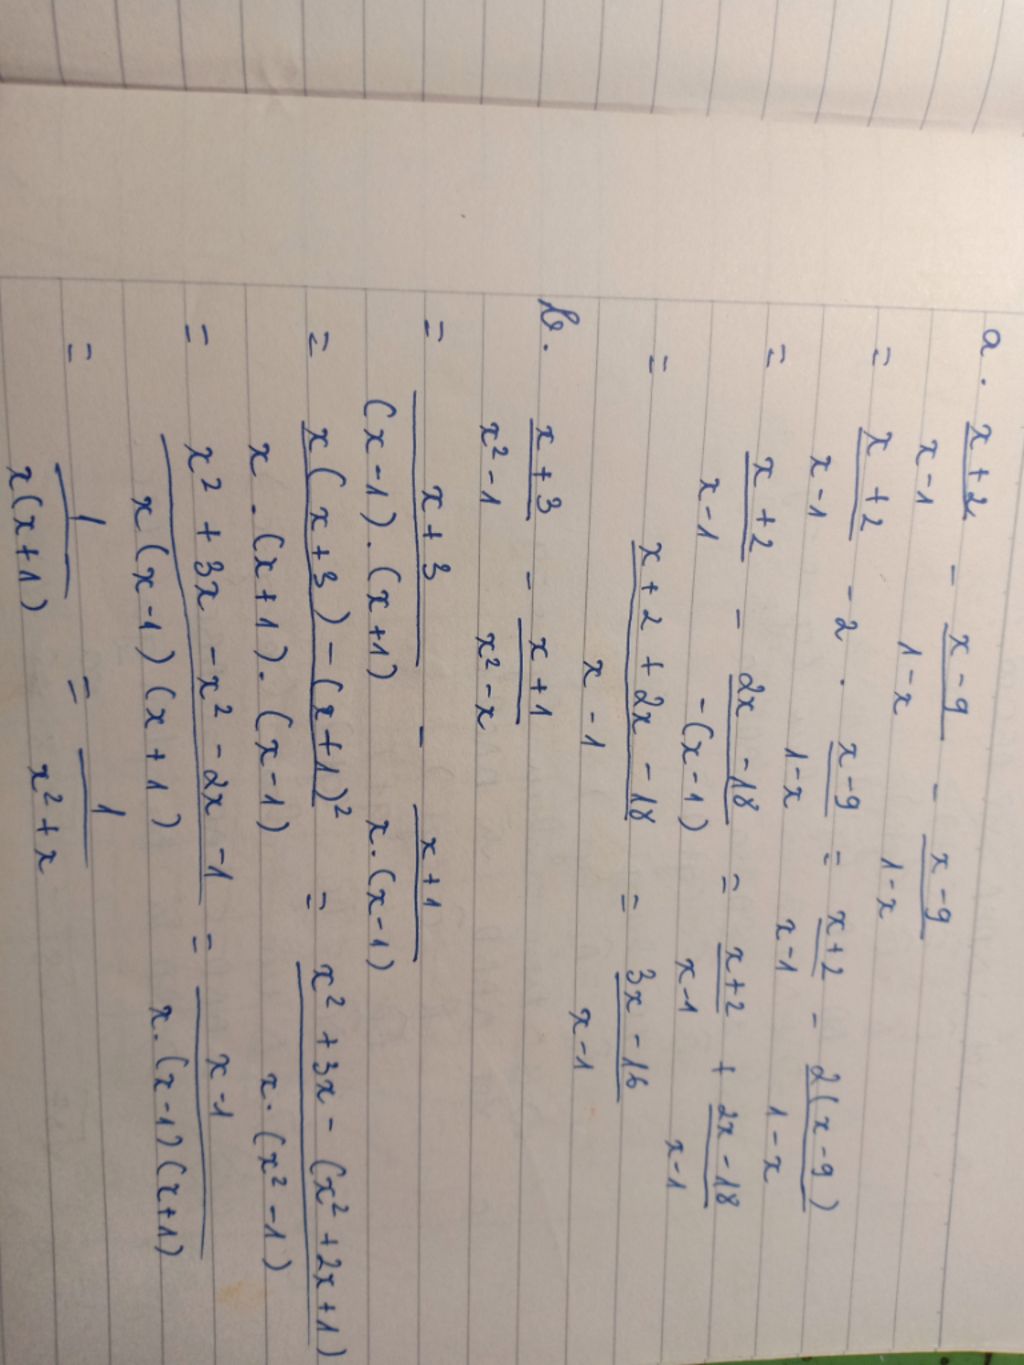 a. (x+2)/(x-1) - (x-9)/(1-x) - (x-9)/(1-x)
= (x+2)/(x-1) - 2 . (x-9)/(1-x) = (x+2)/(x-1) - 2(x-9)/(1-x)
= (x+2)/(x-1) - (2x-18)/(-(x-1)) = (x+2)/(x-1) + (2x-18)/(x-1)
= (x+2+2x-18)/(x-1) = (3x-16)/(x-1)
b. (x+3)/(x²-1) - (x+1)/(x²-x)
= (x+3)/((x-1).(x+1)) - (x+1)/(x.(x-1))
= (x(x+3)-(x+1)²)/(x.(x+1).(x-1)) = (x²+3x-(x²+2x+1))/(x.(x²-1))
= (x²+3x-x²-2x-1)/(x(x-1)(x+1)) = (x-1)/(x.(x-1)(x+1))
= 1/(x(x+1)) = 1/(x²+x)